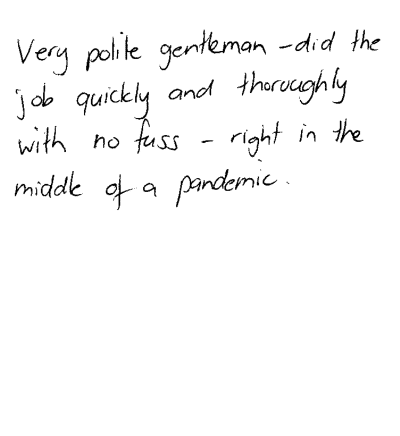 Very polite gentleman - did the
job quickly and thoroughly
with no fuss - right in the
middle of a pandemic.